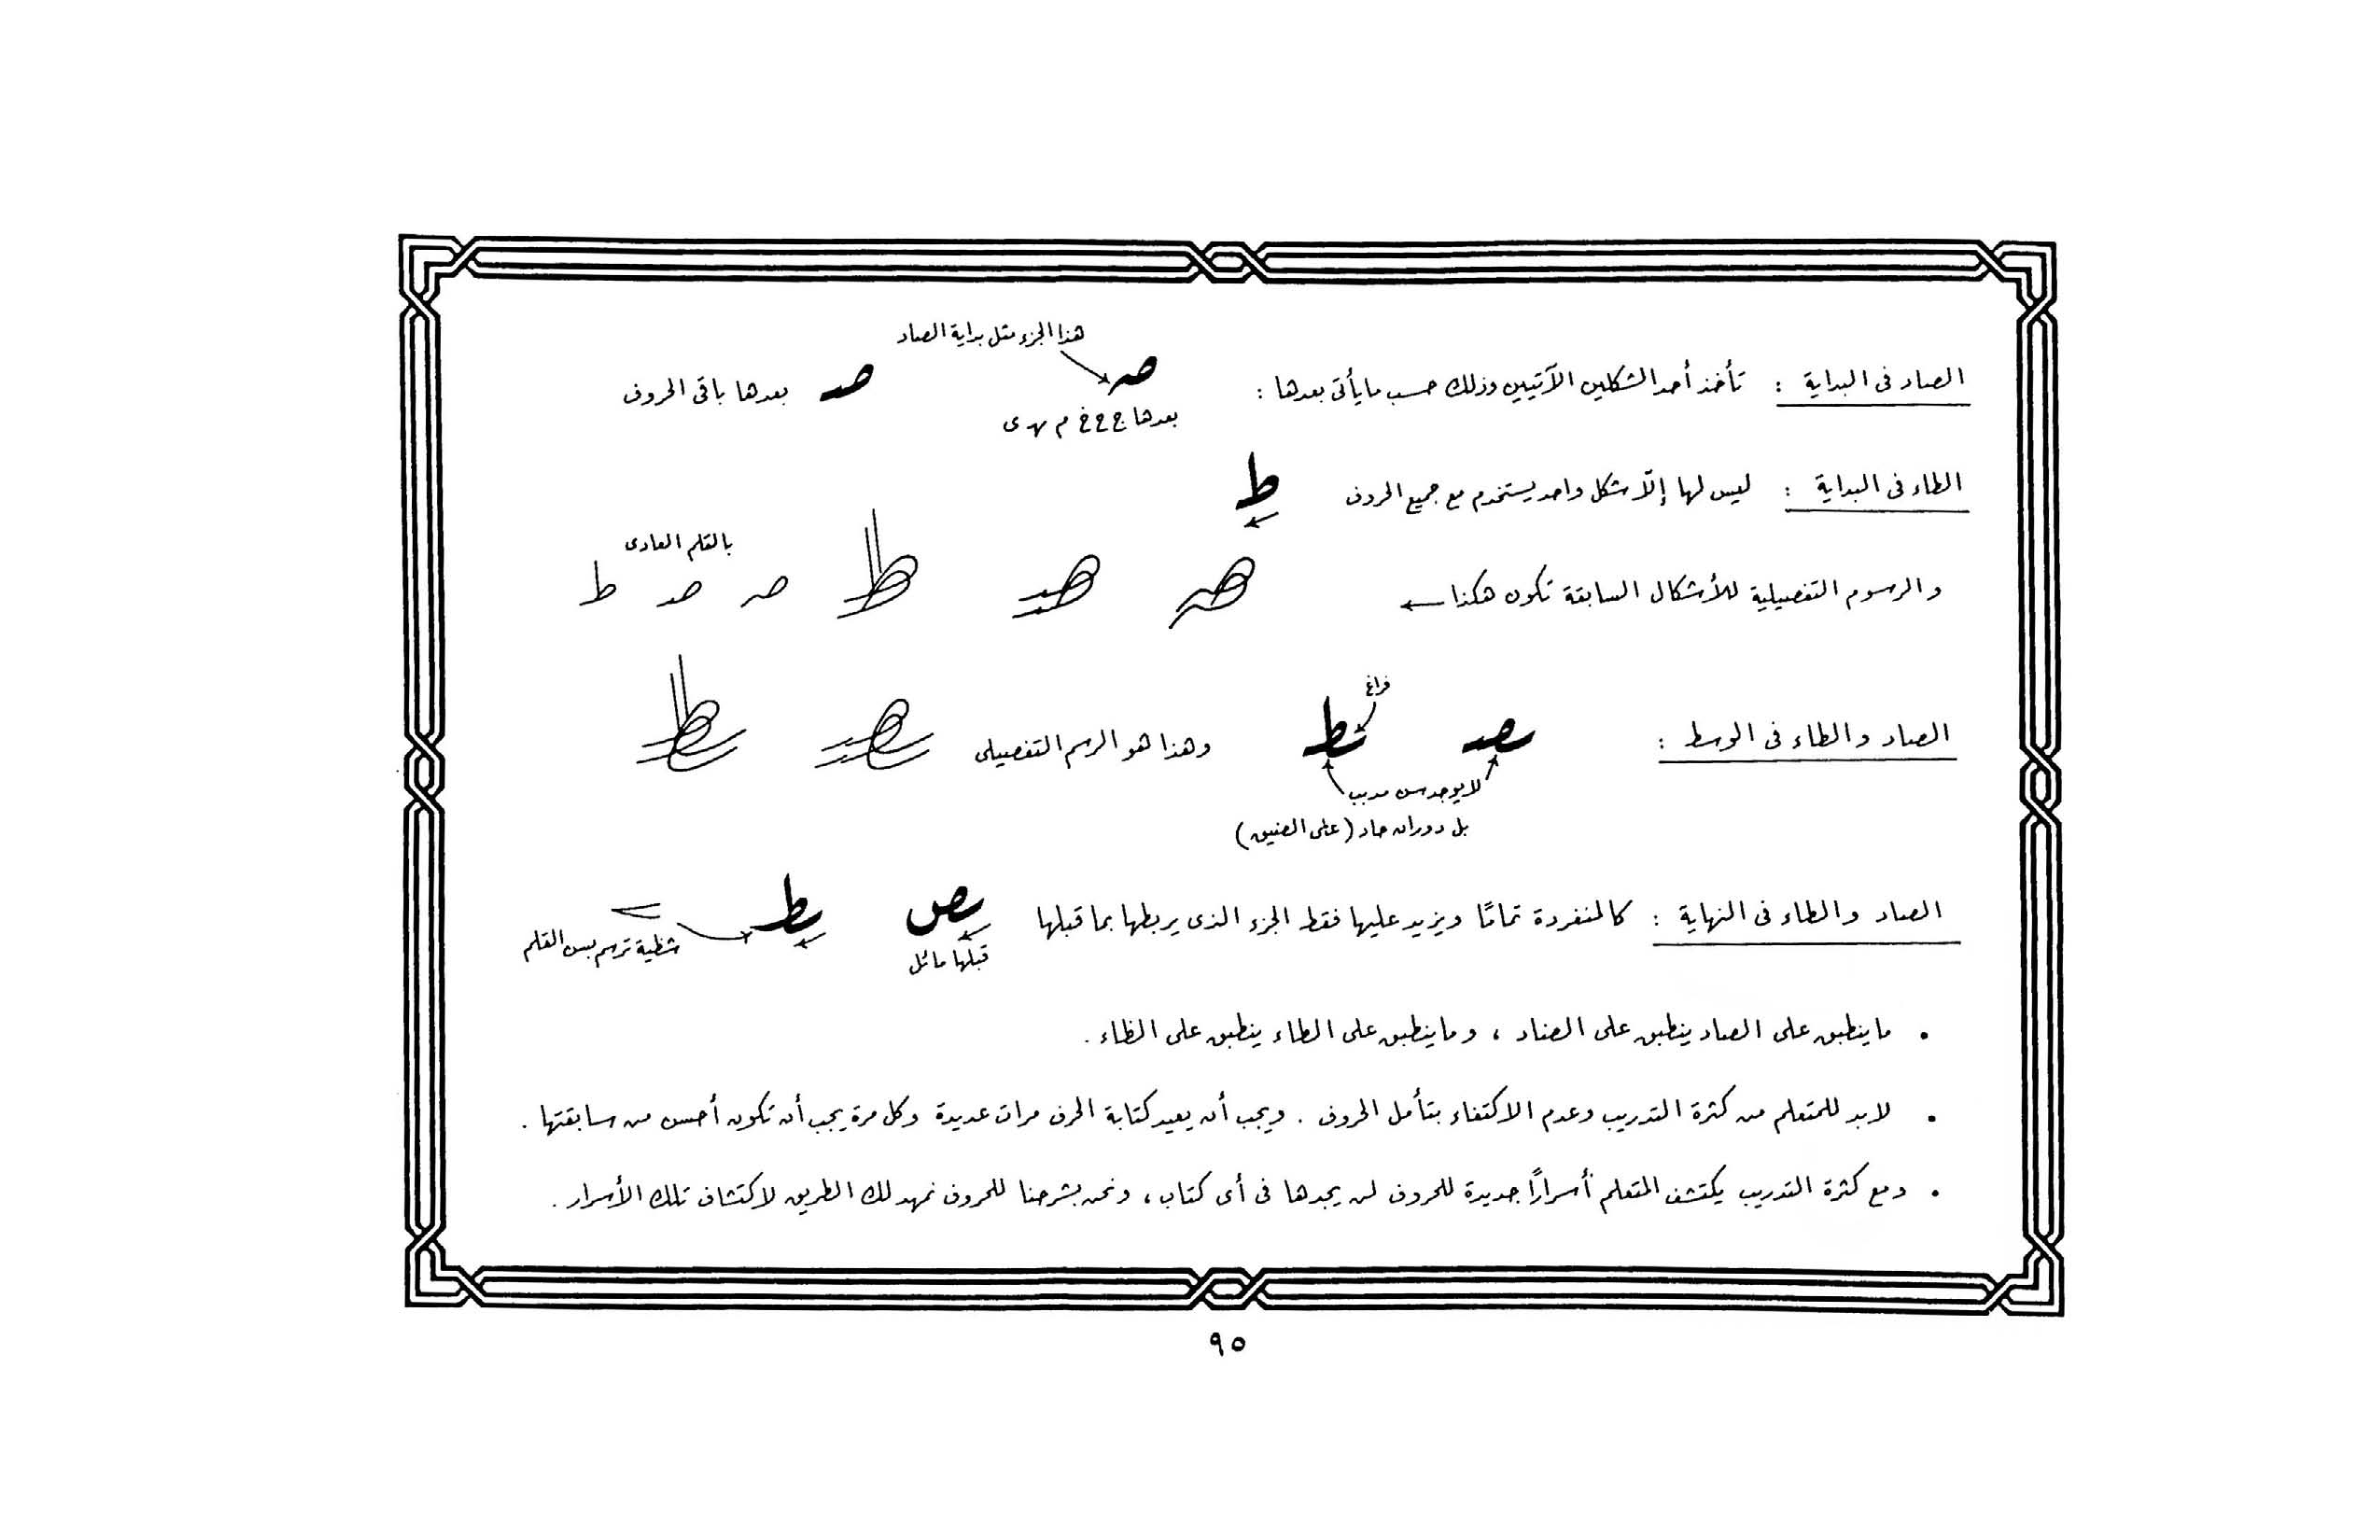 هذا الجزء مثل بداية الصاد
الصاد فى البداية : تأخذ أحد الشكلين الآتيين وذلك حسب ما يأتى بعدها : صـ صـ بعدها باقى الحروف
بعدها ج ح خ م ى
الطاء فى البداية : ليس لها إلّا شكل واحد يستخدم مع جميع الحروف ط
بالقلم العادى
والرسوم التفصيلية للأشكال السابقة تكون هكذا صـ صـ ط صـ صـ ط
فراغ
الصاد والطاء فى الوسط : ـصـ ـطـ وهذا هو الرسم التفصيلى ـصـ ـطـ
لا يوجد سن مدبب
بل دوران حاد (على الضيق)
الصاد والطاء فى النهاية : كالمنفردة تمامًا ويزيد عليها فقط الجزء الذى يربطها بما قبلها ـص ـط
قبلها مائل
شظية ترسم بسن القلم
• ما ينطبق على الصاد ينطبق على الضاد ، وما ينطبق على الطاء ينطبق على الظاء .
• لابد للمتعلم من كثرة التدريب وعدم الاكتفاء بتأمل الحروف . ويجب أن يعيد كتابة الحرف مرات عديدة وكل مرة يجب أن تكون أحسن من سابقتها .
• ومع كثرة التدريب يكتشف المتعلم أسرارًا جديدة للحروف لن يجدها فى أى كتاب ، ونحن بشرحنا للحروف نمهد لك الطريق لاكتشاف تلك الأسرار .
٩٥